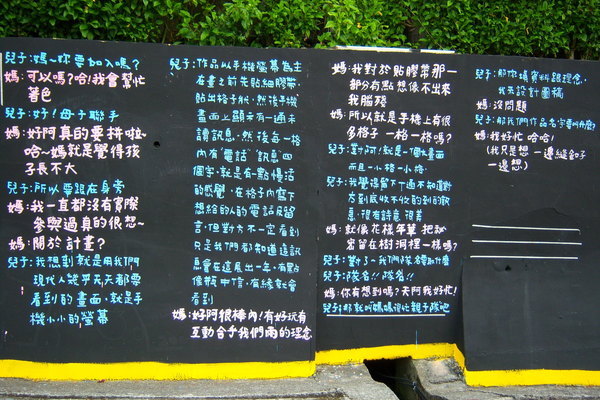 兒子:媽~妳要加入嗎?
媽:可以嗎?哈!我會幫忙
著色
兒子:好!母子聯手
媽:好阿真的要拼啦~
哈~媽就是覺得孩
子長不大
兒子:所以要跟在身旁
媽:我一直都沒有實際
參與過真的很想~
媽:關於計畫?
兒子:我想到就是用我們
現代人幾乎天天都需
看到的畫面,就是手
機小小的螢幕
兒子:作品以手機螢幕為主
在畫之前先貼細膠帶,
貼出格子狀,然後手機
畫面上顯示有一通未
讀訊息,然後每一格
內有「電話」「訊息」四
個字,就是有一點慢活
的感覺,在格子內寫下
想給的人的電話及留
言,但對方不一定看到
只是我們都知道這訊
息會在這展出一年,有點
像瓶中信,有緣就會
看到
媽:好阿很棒內!有好玩有
互動合乎我們兩的理念
媽:我對於貼膠帶那一
部分有點想像不出來
我腦殘
媽:所以就是手機上有很
多格子 一格一格嗎?
兒子:對阿!就是一個大畫面
而且一小格一小格
兒子:我覺得留下了通不知道對
方到底收不收的到的訊
息,很有詩意 很美
媽:就像花樣年華 把秘
密留在樹洞裡一樣嗎?
兒子:對了~我們隊名要取什麼
兒子:隊名!!隊名!!
媽:你有想到嗎?天阿我好忙!
兒子:那就叫媽媽很忙親子隊吧
兒子:那妳填資料跟理念,
我來設計圖稿
媽:沒問題
兒子:那我們作品名字要叫什麼?
媽:我好忙 哈哈!
(我只是想 一邊縫釦子
一邊想)